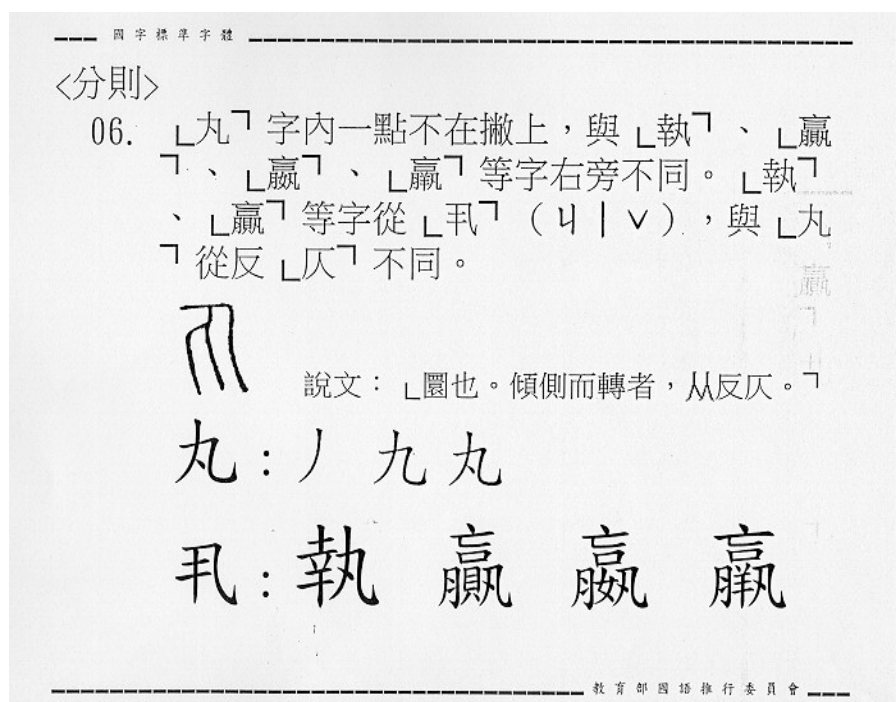 國字標準字體
<分則>
06. ﹂丸﹁ 字內一點不在撇上，與 ﹂執﹁ 、 ﹂贏
﹁ 、 ﹂嬴﹁ 、 ﹂羸﹁ 等字右旁不同。 ﹂執﹁
、 ﹂贏﹁ 等字從 ﹂丮﹁ （ㄐㄧˇ），與 ﹂丸
﹁ 從反 ﹂仄﹁ 不同。
說文： ﹂圜也。傾側而轉者，从反仄。﹁
丸：丿 九 丸
丮：執 贏 嬴 羸
教育部國語推行委員會